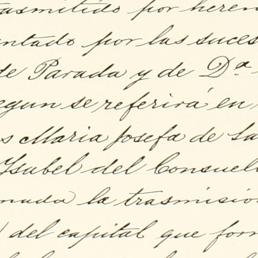 trasmitido por heren
ntado por las suces
de Parada y de D.ª
egun se referirá en
s Maria Josefa de la
Ysabel del Consuel
nada la trasmision
del capital que for